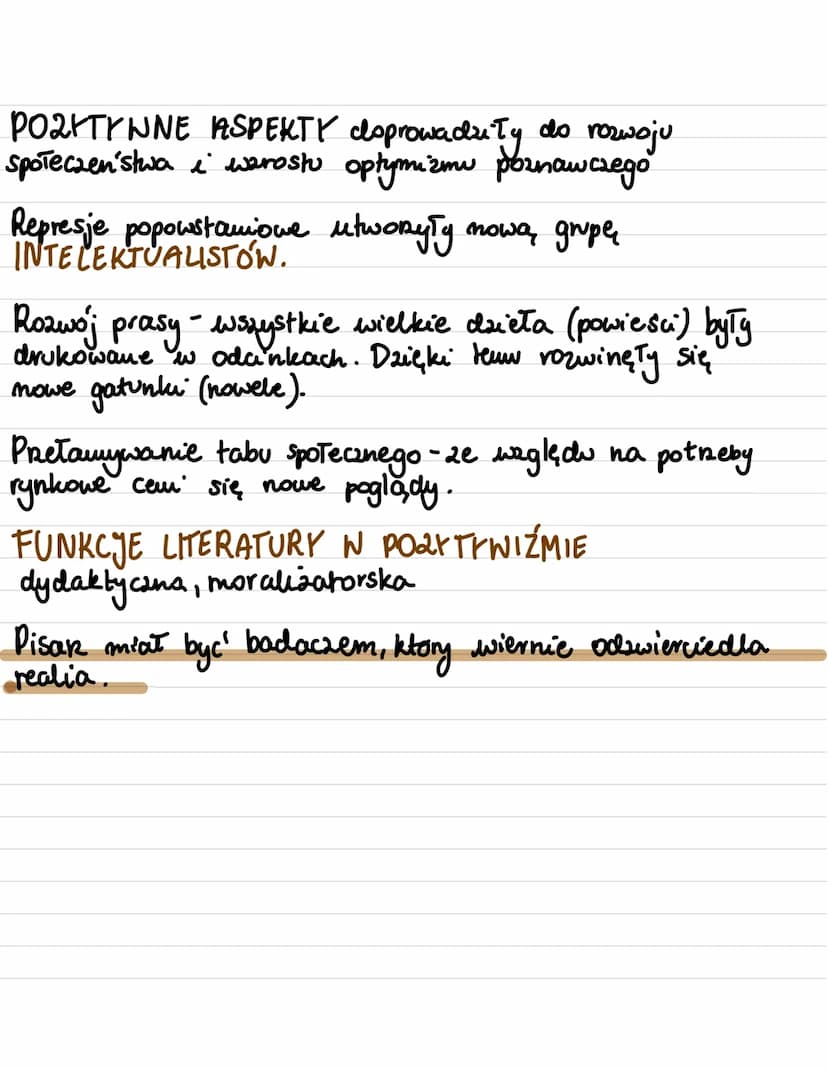 POZYTYWNE ASPEKTY doprowadziły do rozwoju
społeczeństwa i wzrostu optymizmu poznawczego
Represje popowstaniowe utworzyły nową grupę
INTELEKTUALISTÓW.
Rozwój prasy - wszystkie wielkie dzieła (powieści) były
drukowane w odcinkach. Dzięki temu rozwinęły się
nowe gatunki (nowele).
Przełamywanie tabu społecznego - ze względu na potrzeby
rynkowe ceni się nowe poglądy.
FUNKCJE LITERATURY W POZYTYWIŹMIE
dydaktyczna, moralizatorska
Pisarz miał być badaczem, który wiernie odzwierciedla
realia.